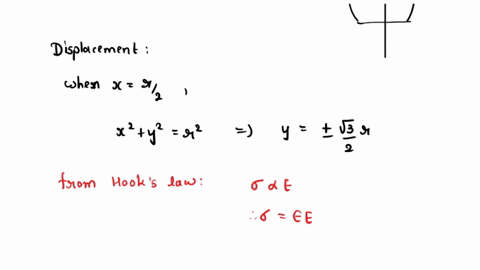 Displacement:
when x = r/2 ,
x² + y² = r² => y = ± √3/2 r
from Hook's law: σ ∝ E
∴ σ = ϵE